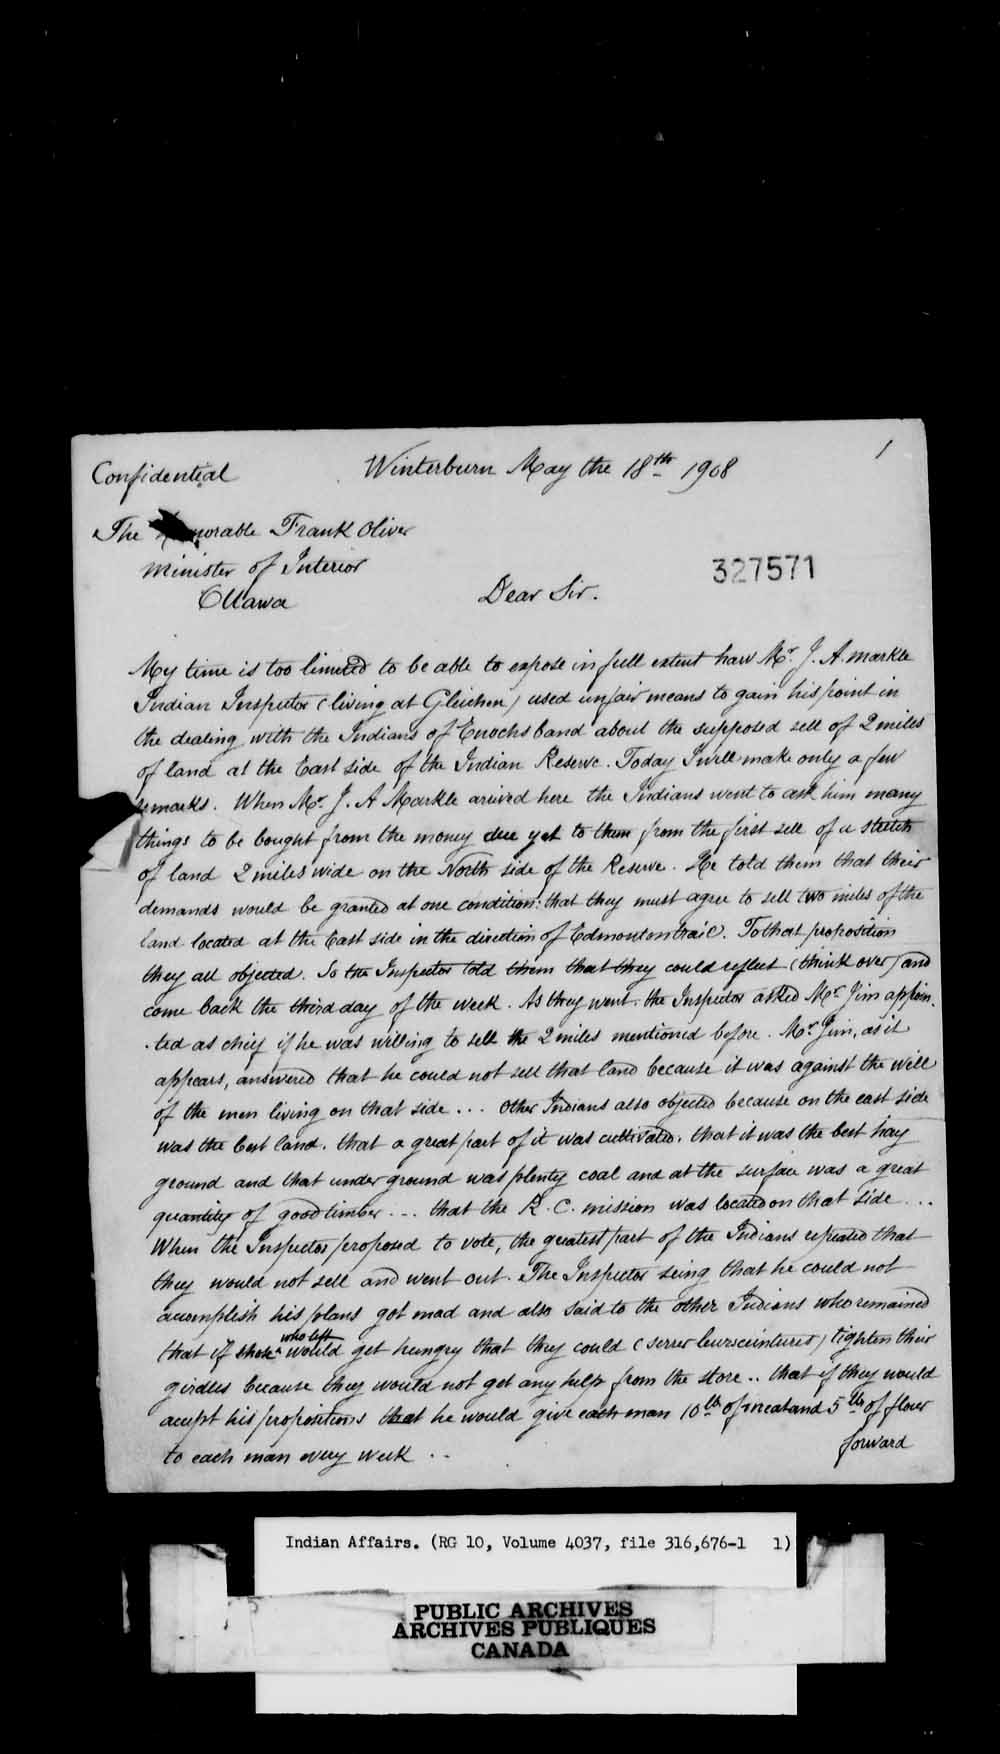 1
Confidential
Winterburn May the 18th 1908
The Honorable Frank Oliver
Minister of Interior
Ottawa
327571
Dear Sir.
My time is too limited to be able to expose in full extent how Mr. J. A. Markle
Indian Inspector (living at Gleichen) used unfair means to gain his point in
the dealing with the Indians of Enochs band about the supposed sell of 2 miles
of land at the East side of the Indian Reserve. Today I will make only a few
remarks. When Mr. J. A Markle arived here the Indians went to ask him many
things to be bought from the money due yet to them from the first sell of a stretch
of land 2 miles wide on the North side of the Reserve. He told them that their
demands would be granted at one condition: that they must agree to sell two miles of the
land located at the East side in the direction of Edmonton trail. To that proposition
they all objected. So the Inspector told them that they could reflect (think over) and
come back the third day of the week. As they went. the Inspector asked Mr. Jim appoin.
.ted as chief if he was willing to sell the 2 miles mentioned before. Mr. Jim, as it
appears, answered that he could not sell that land because it was against the will
of the men living on that side... Other Indians also objected because on the east side
was the best land. that a great part of it was cultivated. that it was the best hay
ground and that under ground was plenty coal and at the surface was a great
quantity of good timber... that the R. C. mission was located on that side...
When the Inspector proposed to vote, the greatest part of the Indians repeated that
they would not sell and went out. The Inspector seing that he could not
acomplish his plans got mad and also said to the other Indians who remained
that if those who left would get hungry that they could (serrer leurs ceintures) tighten their
girdles because they would not get any help from the store.. that if they would
accept his propositions that he would give each man 10 lb of meat and 5 lbs of flour
to each man every week..
forward
Indian Affairs. (RG 10, Volume 4037, file 316,676-1 1)
PUBLIC ARCHIVES
ARCHIVES PUBLIQUES
CANADA